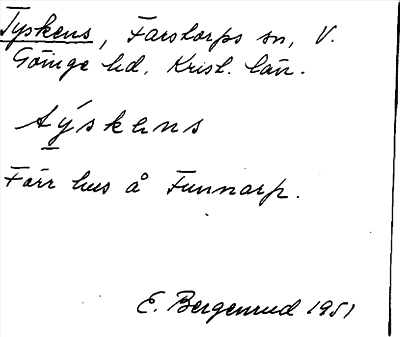 Tyskens, Farstorps sn, V.
Göinge hd, Krist. län.
týskens
Förr hus å Funnarp.
E. Bergenrud 1951